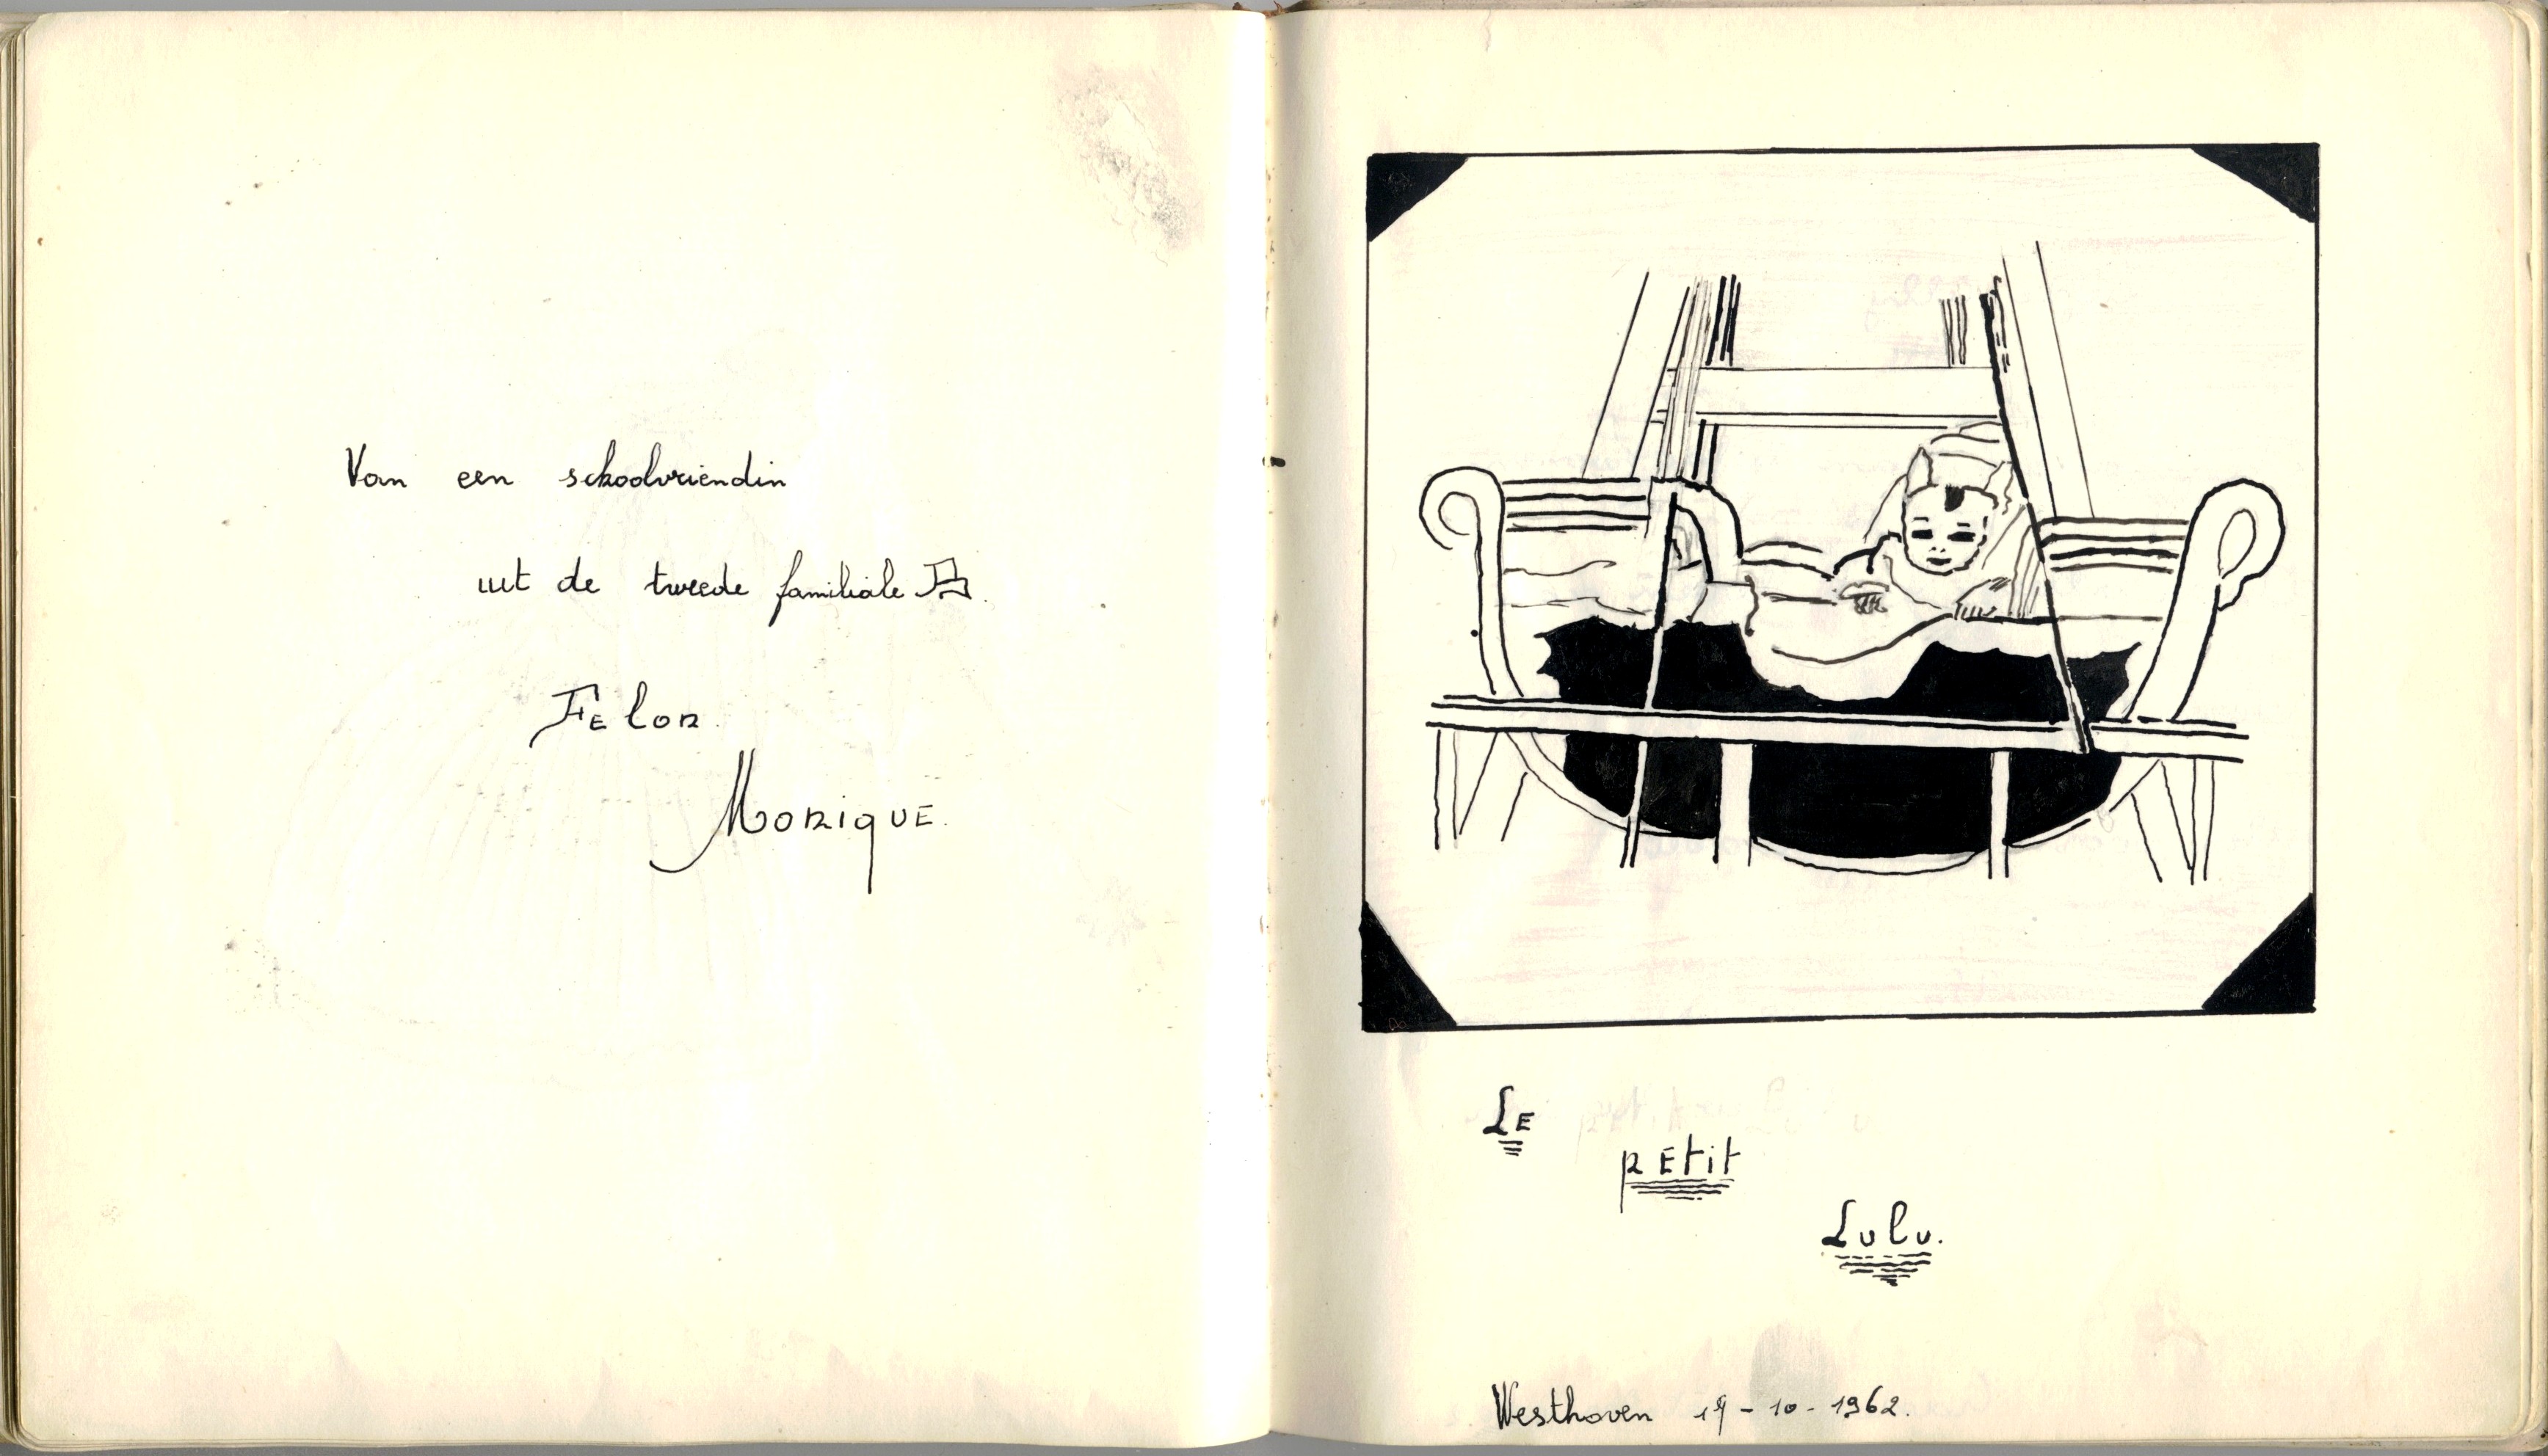 Van een schoolvriendin
uit de tweede familiale B.
Felon
Monique.
Le
petit
Lulu.
Westhoven 19-10-1962.